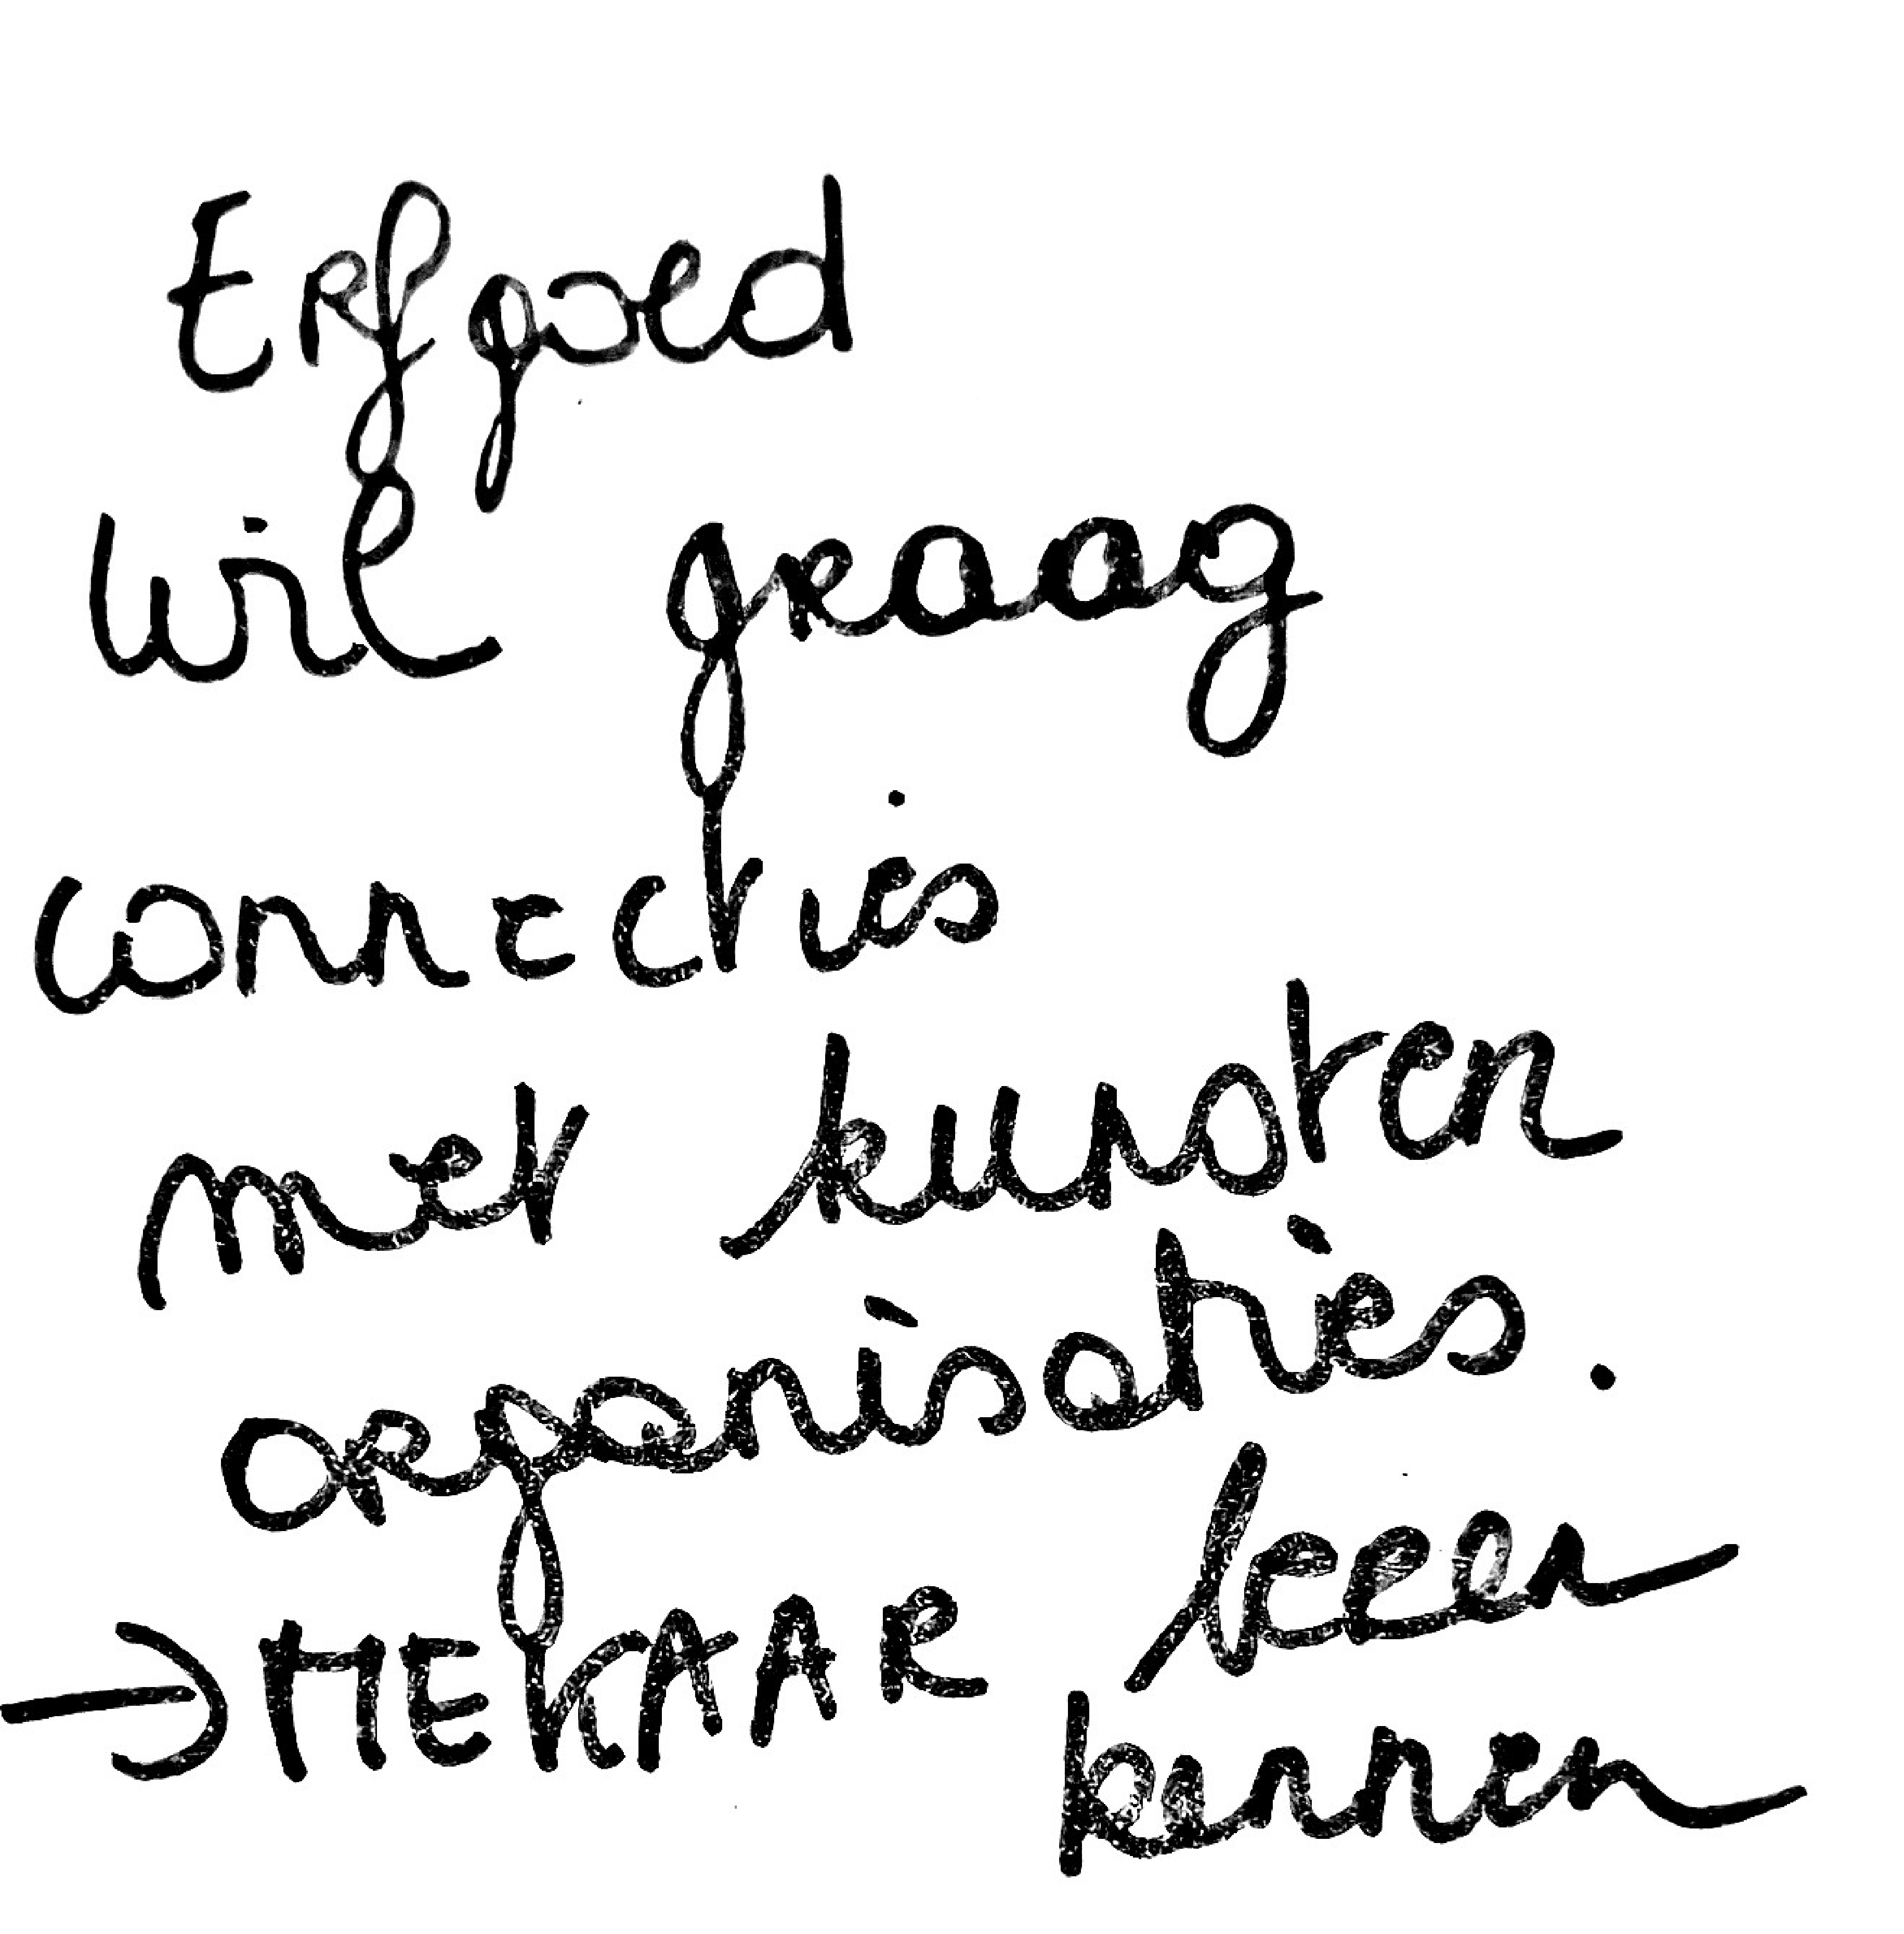 Erfgoed
Wil graag
connecties
met kunsten
organisaties.
→ MEKAAR leren
kennen